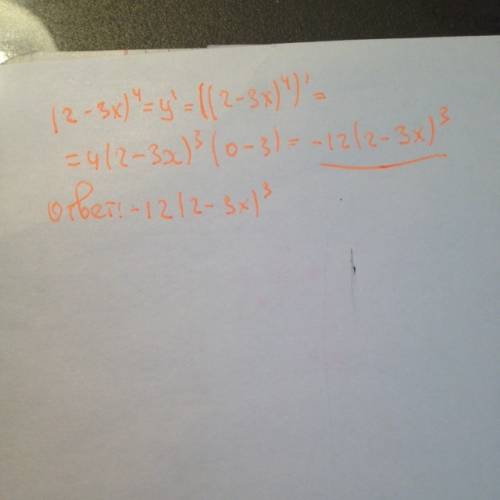 (2-3x)^4=y'=((2-3x)^4)'=
=4(2-3x)^3(0-3)=-12(2-3x)^3
Ответ: -12(2-3x)^3